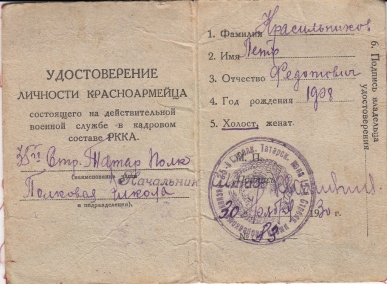 УДОСТОВЕРЕНИЕ
ЛИЧНОСТИ КРАСНОАРМЕЙЦА
состоящего на действительной
военной службе в кадровом
составе РККА.
Стр. Татар Полк
(наименование части
Полковая школа
и подразделения).
Начальник
1. Фамилия Красильников
2. Имя Петр
3. Отчество Федотович
4. Год рождения 1908
5. Холост, женат.
М. П.
30 1930 г.
№ 89
6. Подпись владельца
удостоверения